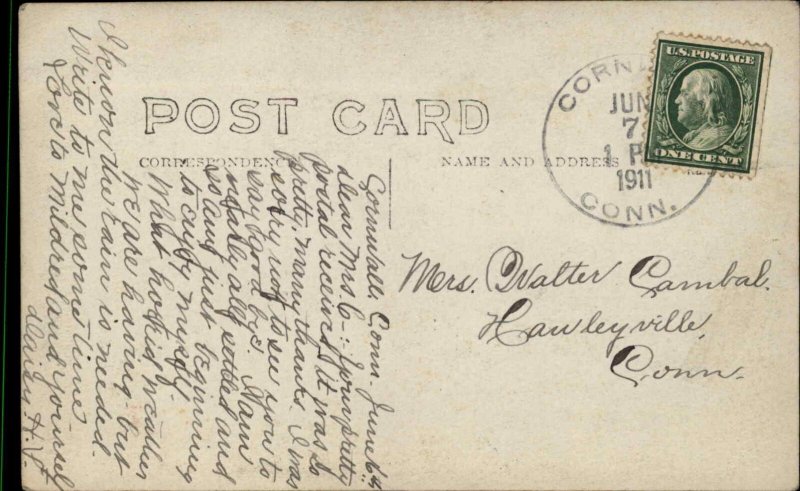 POST CARD
CORRESPONDENCE
NAME AND ADDRESS
U.S. POSTAGE
ONE CENT
CORNWALL
JUN
7
1 P
1911
CONN.
Mrs. Walter Cambal.
Hawleyville,
Conn.
Cornwall, Conn. June 6th
Dear Mrs. C-: Your pretty
postal received. It was so
pretty, many thanks. I was
sorry not to see you to
say good bye. I am
nicely all settled and
is and just beginning
to enjoy myself.
What horrid weather
we are having- but
I know the rain is needed.
Write to me some time.
Love to Mildred and yourself
H.